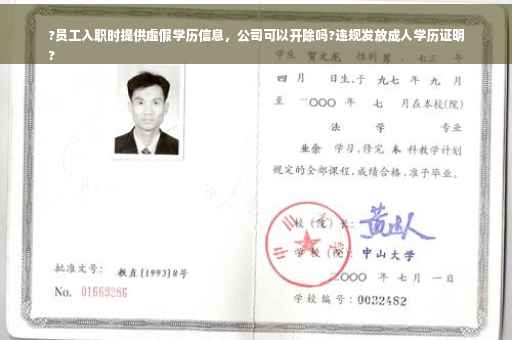 ?员工入职时提供虚假学历信息，公司可以开除吗?违规发放成人学历证明
?
学生 贺文龙 性别 男，七三 年
四 月 日生,于 九七 年 九 月
至 二〇〇〇 年 七 月在本校(院)
法 学 专业
业余 学习,修完 本 科教学计划
规定的全部课程,成绩合格,准予毕业。
校（院）长:
学校（院）: 中山大学
二〇〇〇 年 七 月 一 日
批准文号: 教直[1993]8号
No. 01663286
学校编号: 0032482